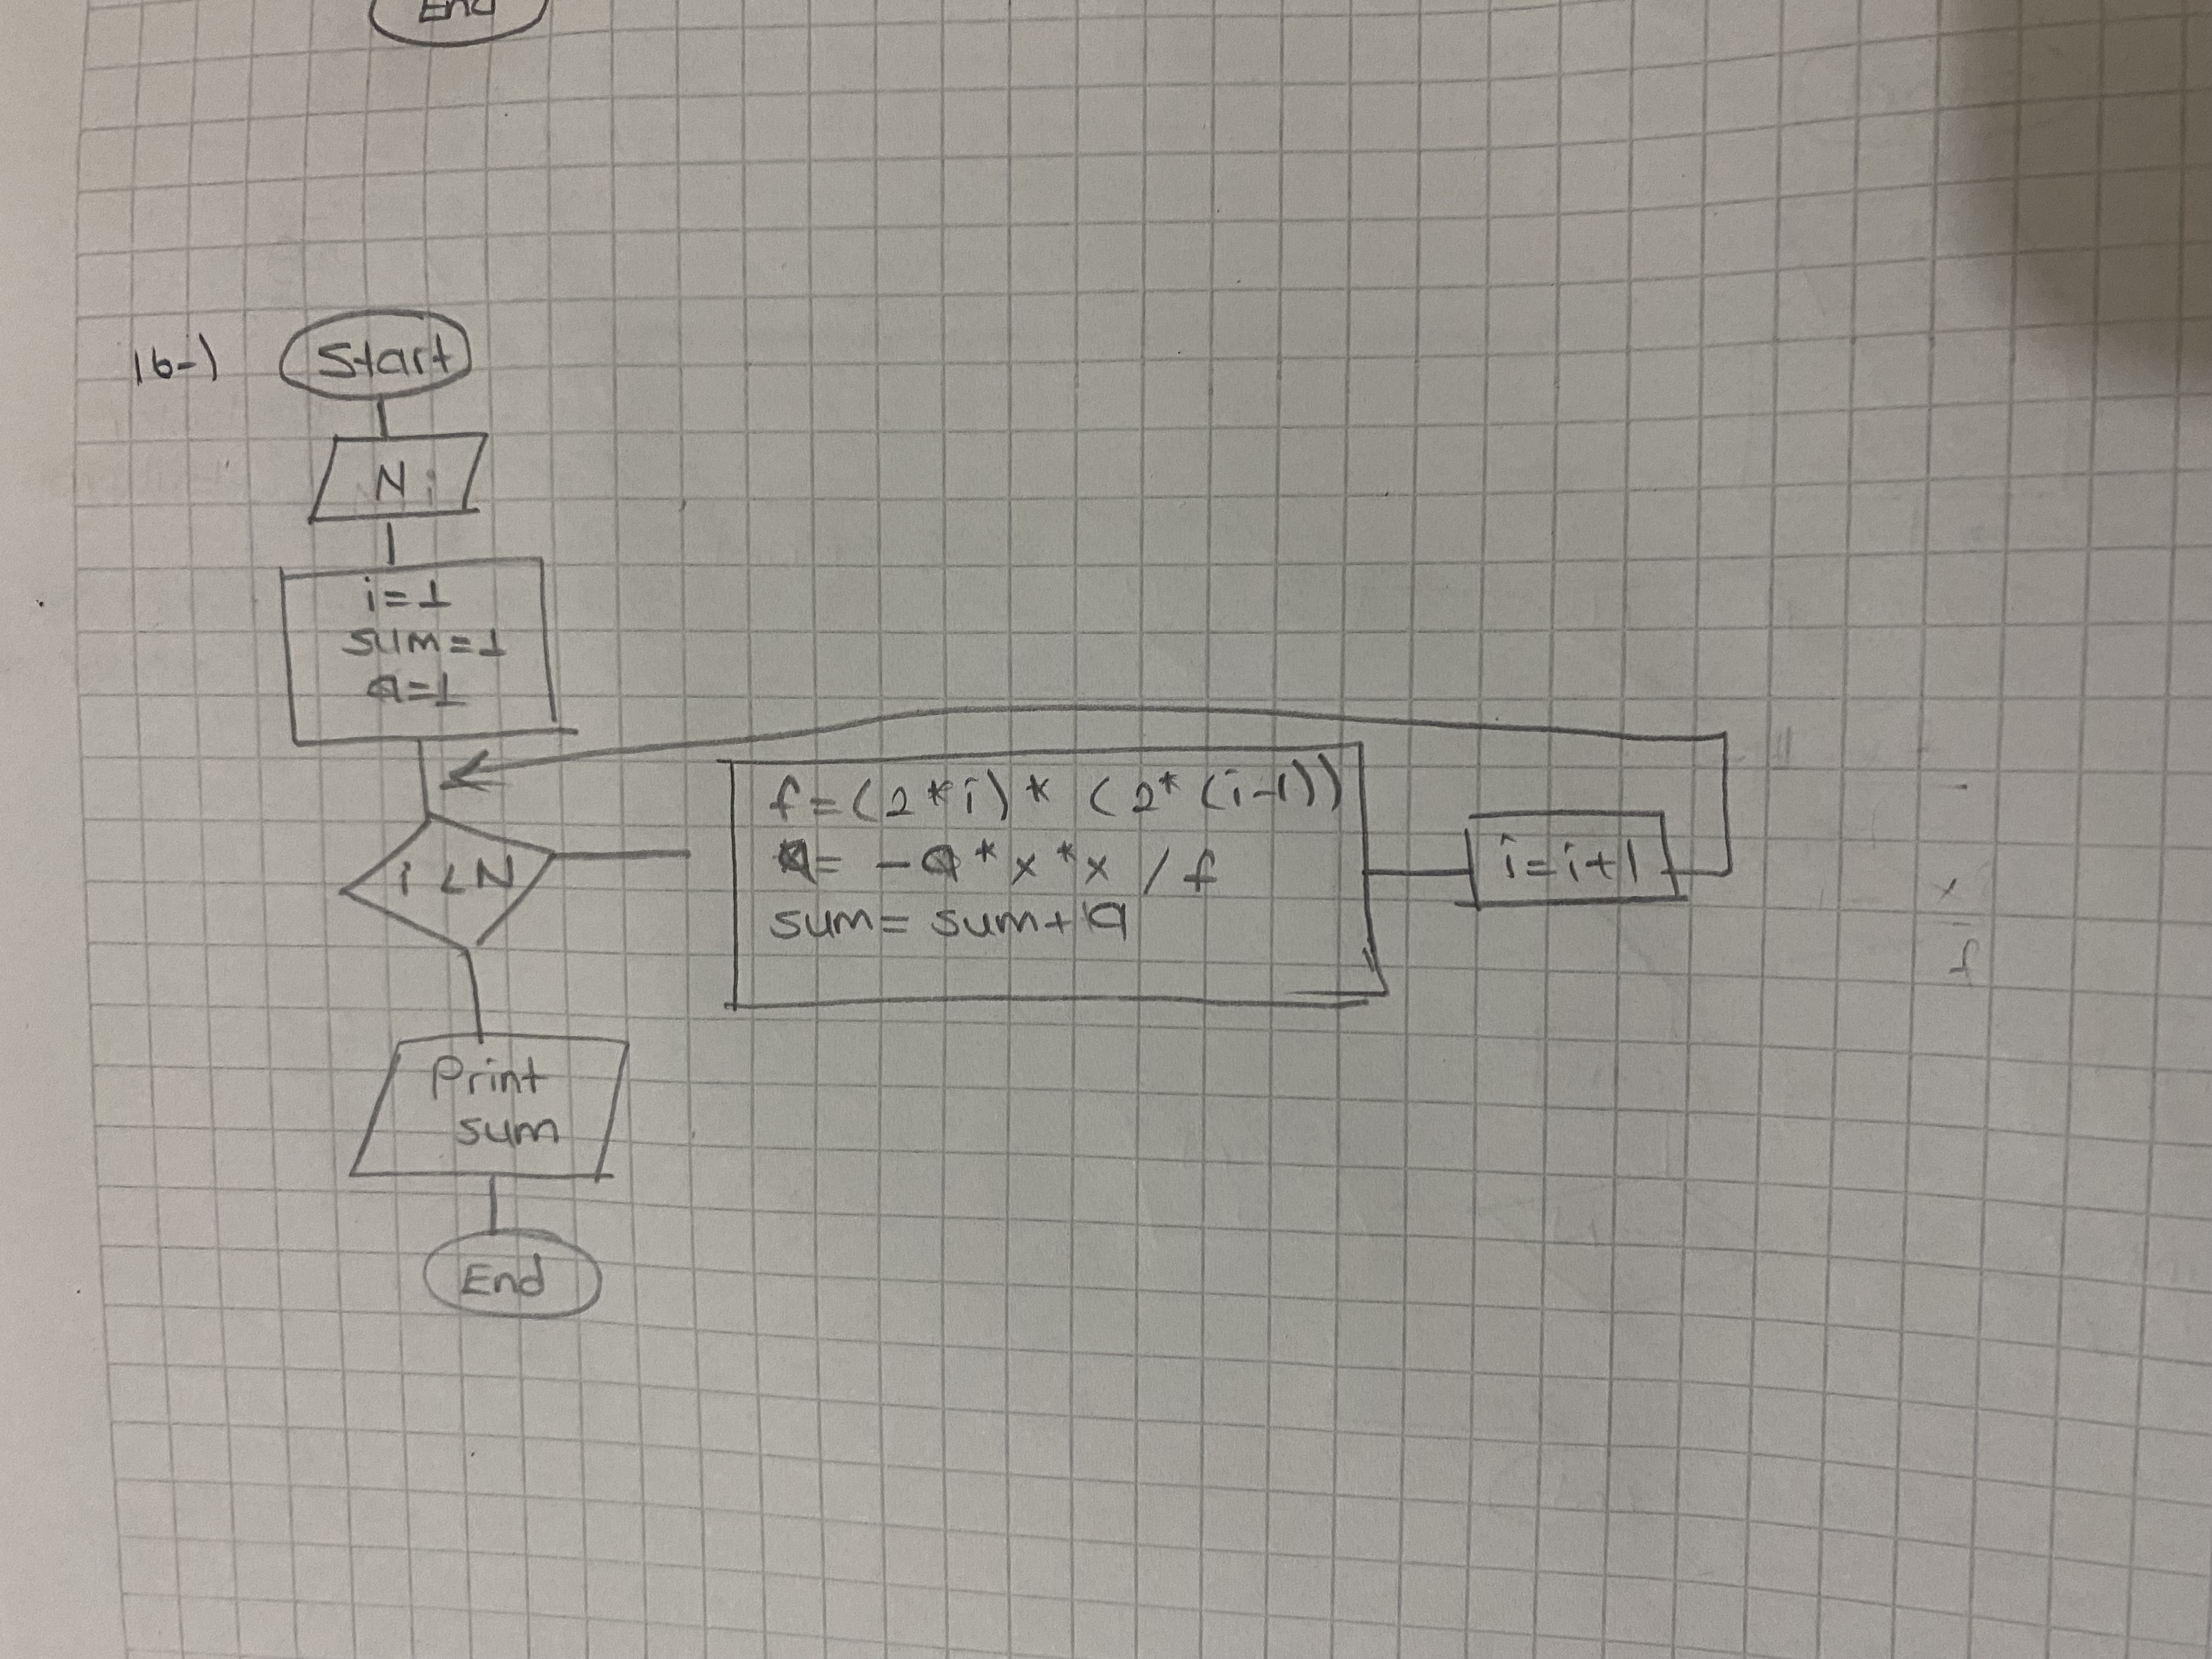 End
16-)
Start
N
i=1
sum=1
a=1
i<N
f=(2*i)*(2*(i-1))
a= -a*x*x/f
sum=sum+a
i=i+1
Print
sum
End